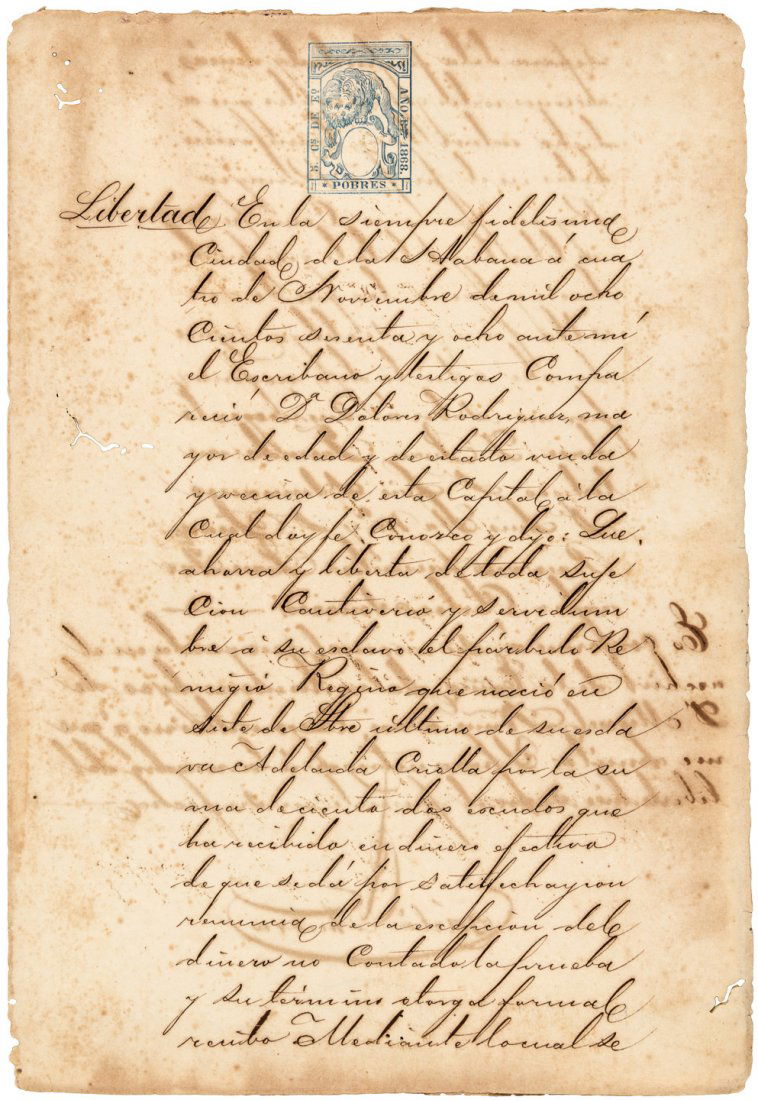 5 Cs DE Eo.
AÑO DE 1868.
* POBRES *
Libertad En la siempre fidelisima
Ciudad de la Habana á cua
tro de Noviembre de mil ocho
cientos sesenta y ocho ante mi
el Escribano y testigos Compa
reció Da. Dolores Rodriguez, ma
yor de edad y de estado viuda
y vecina de esta Capital á la
cual doy fe Conozco y dijo: Que
ahorra y liberta de toda suje
cion Cautiverio y servidum
bre á su esclavo el párbulo Re
migio Regino que nació en
siete de Sbre último de su escla
va Adelaida Criolla por la su
ma de ciento dos escudos que
ha recibido en dinero efectivo
de que se dá por satisfecha y con
renuncia de la escepcion del
dinero no Contado la prueba
y su término otorga formal
recibo Mediante lo cual se